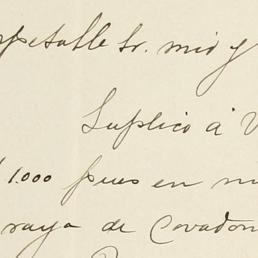 petable Sr. mio y
Suplico á V
1.000 pues en m
raya de Covadon